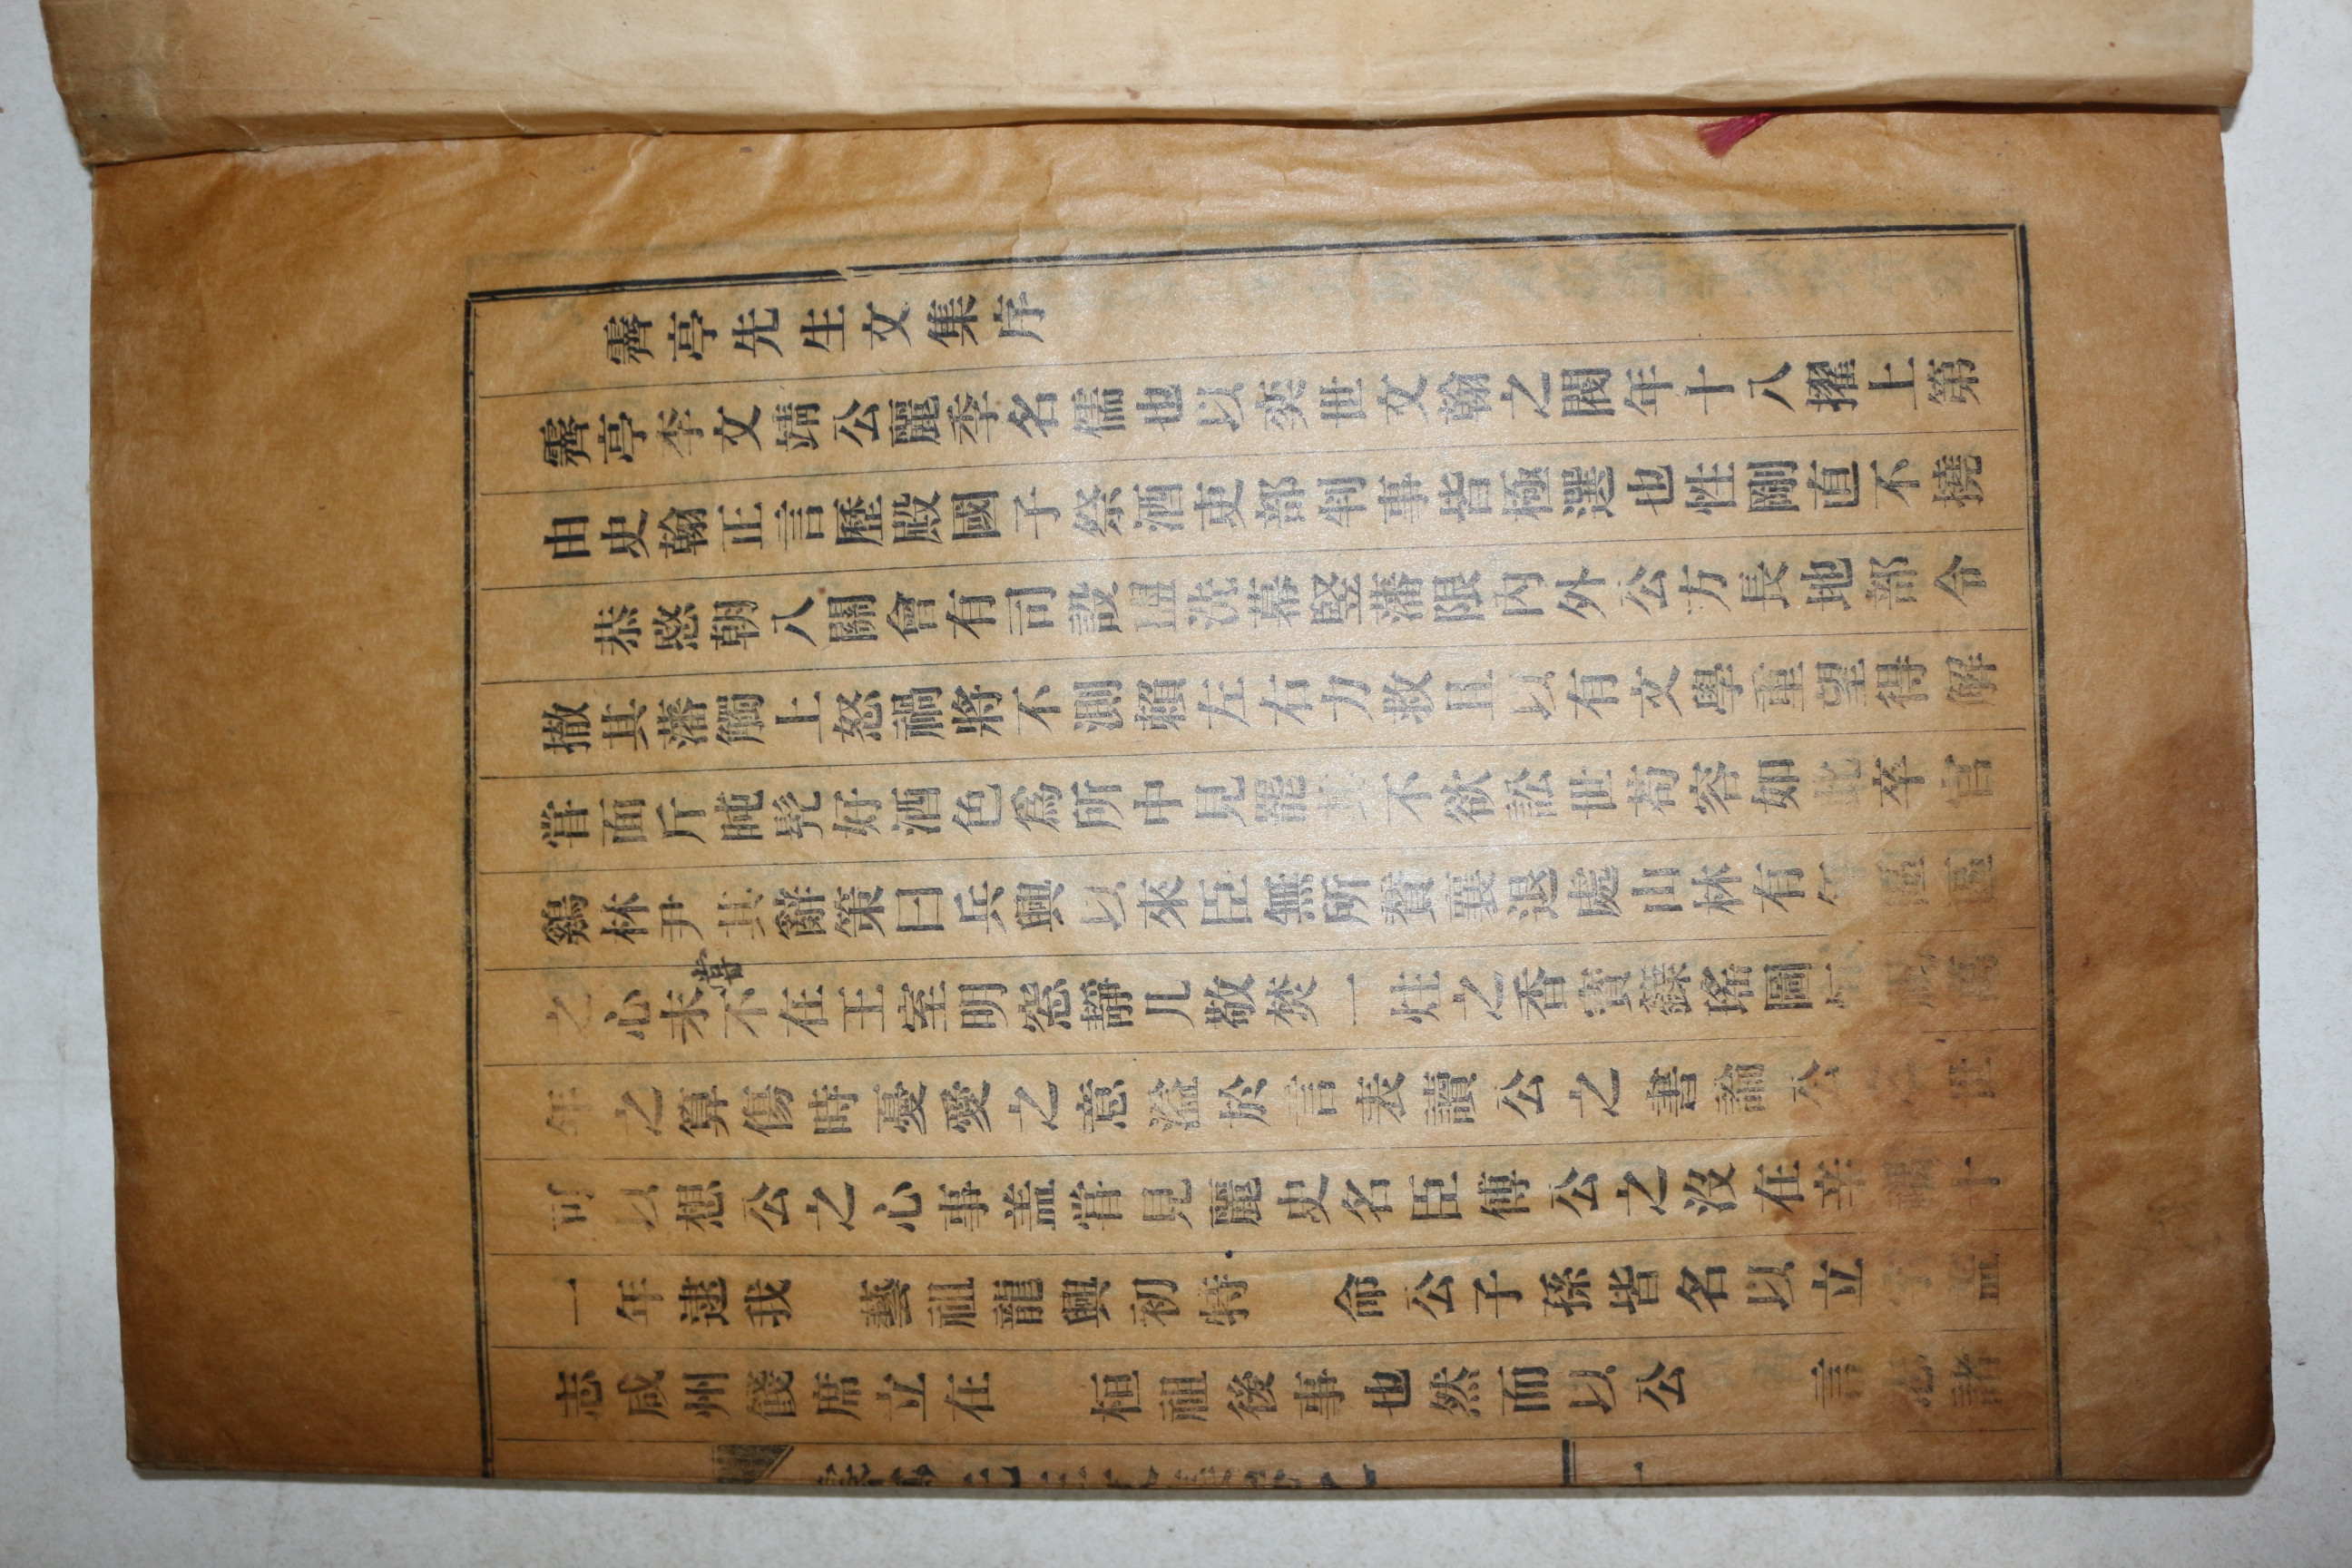 霽亭先生文集序
霽亭李文靖公麗季名儒也以奕世文翰之閥年十八擢上第
由史翰正言歷殿國子祭酒吏部判事皆極選也性剛直不撓
恭愍朝八關會有司設 法幕竪藩限內外公方長地部令
撤其藩觸上怒禍將不測賴左右力救且以有文學重望得解
嘗面斤旽髡好酒色爲所中見罷 不欲訟世苟容如此卒官
鷄林尹其辭策曰兵興以來臣無所贊襄退處山林有年
之心未嘗不在王室明窓靜几敬焚一炷之香寶籙瑤圖
年之算傷時憂愛之意溢於言表讀公之書論公 世
可以想公之心事盖嘗見麗史名臣傳公之沒在辛禑 十
一年逮我 藝祖龍興初特 命公子孫皆名以立
志咸州餞席立在 桓祖後事也然而以公 言 諸